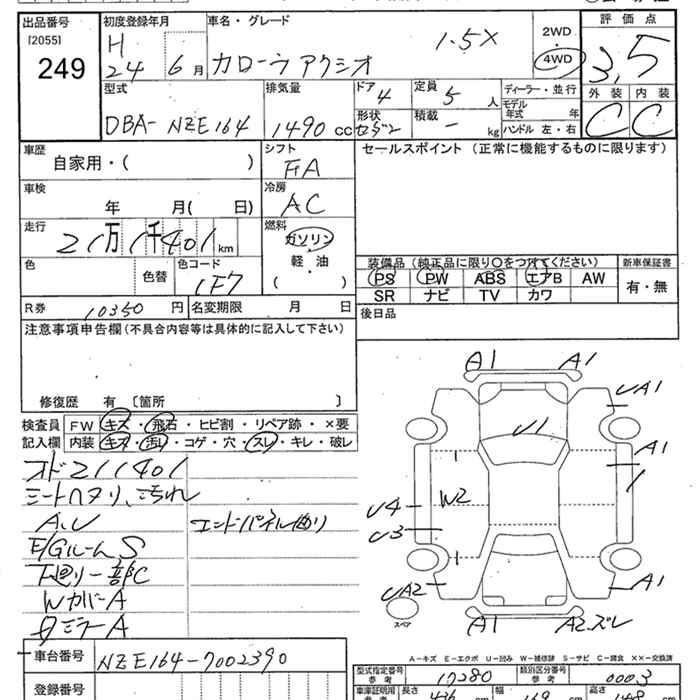 出品番号
[2055]
249
初度登録年月
H
24 6 月
車名・グレード
1.5X
カローラアクシオ
2WD
4WD
評価点
3.5
外装 内装
C C
型式
DBA- NZE164
排気量
1490 cc
ドア
4
定員
5 人
形状
セダン
積載
- kg
ディーラー・並行
モデル年式 年
ハンドル 左・右
車歴
自家用・( )
シフト
FA
セールスポイント (正常に機能するものに限ります)
車検
年 月( 日)
冷房
AC
走行
21万1千401 km
燃料
ガソリン
軽・油
( )
色
色替
色コード
1F7
装備品(純正品に限り○をつけてください)
PS PW ABS エアB AW
SR ナビ TV カワ
新車保証書
有・無
R券 10350 円
名変期限 月 日
後日品
注意事項申告欄(不具合内容等は具体的に記入して下さい)
修復歴 有 〔箇所 〕
検査員記入欄
FW キズ・飛石・ヒビ割・リペア跡・×要
内装 キズ・汚れ・コゲ・穴・スレ・キレ・破レ
オド211401
シートヘタリ、汚れ
A.U エンドパネル曲り
E/GルームS
下廻り一部C
WカバーA
A1 A1
UA1
U1
A1
W2
U4
U3
UA2
A1
スペア
A1 A2.ズレ
A-キズ E-エクボ U-凹み W-補修跡 S-サビ C-腐食 ××-交換済
車台番号 NZE164-7002390
登録番号
型式指定番号 参考 17280
類別区分番号 参考 0003
車検証明用 参考
長さ 436
幅 169
高さ 148